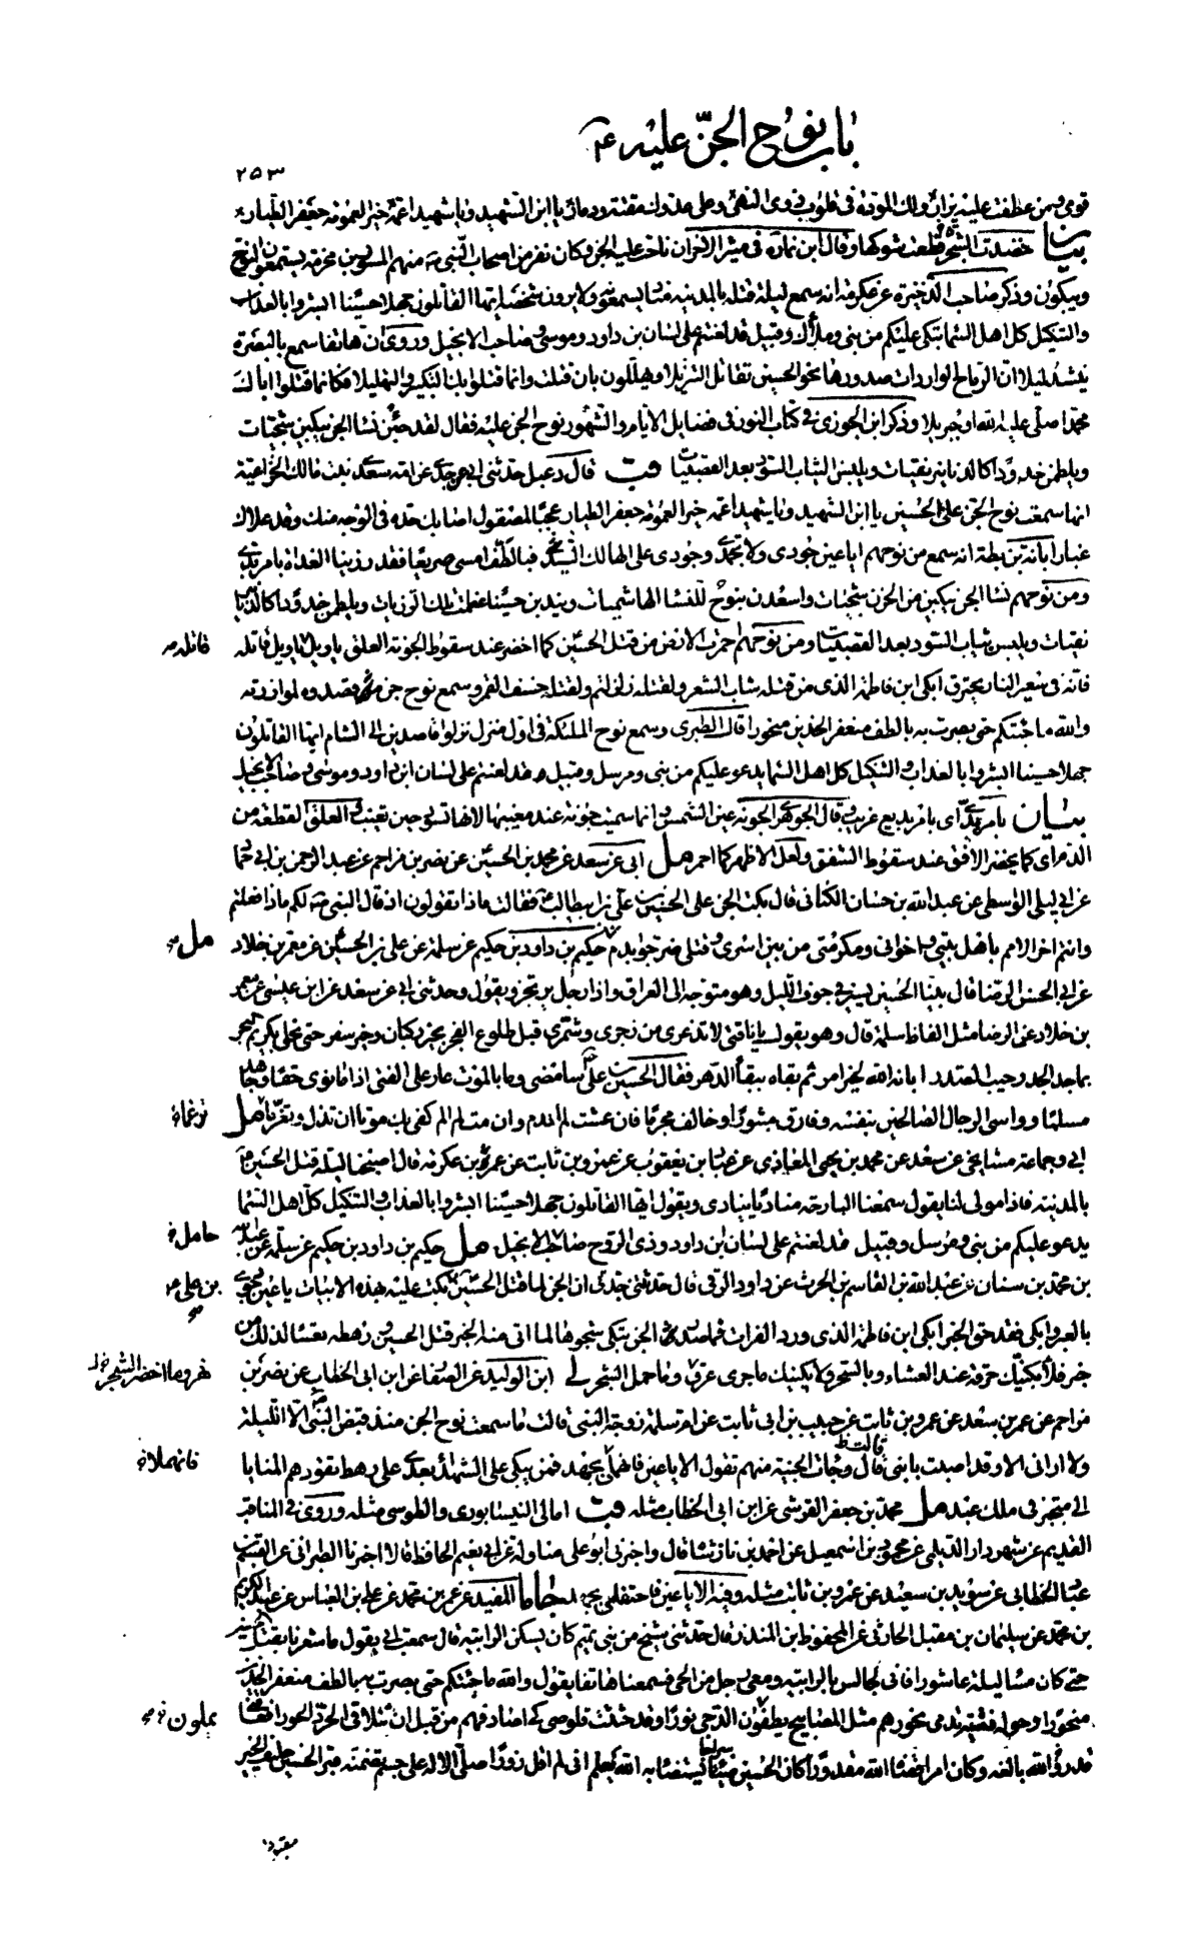 باب نوح الجنّ عليه ع
٢٥٣
عطفت عليه
بيان خضدت الشجر قطعت شوكها وقال ابن نما ره في مثير الاحزان ناحت عليه الجن وكان نفر من اصحاب النبي ص منهم المسور بن مخرمة يستمعون النوح
ويبكون وذكر صاحب الذخيرة عن عكرمة انه سمع ليلة قتله بالمدينة مناد يسمعونه ولا يرون شخصه ايها القاتلون جهلا حسينا ابشروا بالعذاب
والتنكيل كل اهل السما تبكي عليكم من نبي وملأك وقبيل قد لعنتم على لسان بن داود وموسى وصاحب الانجيل وروى ان هاتفا سمع بالبصرة
ينشد ليلا ان الرماح الواردات صدورها نحو الحسين تقاتل التنزيلا ويهللون بان قتلت وانما قتلوا بك التكبير والتهليلا فكانما قتلوا اباك
محمدا صلى عليه الله او جبريلا وذكر ابن الجوزى في كتاب النور في فضايل الايام والشهور نوح الجن عليه فقال لقد جئن نسا الجن يبكين شجيات
ويلطمن خدودا كالدنانير نقيات ويلبسن الثياب السود بعد القصبيات قب قال دعبل حدثني ابي عن جدي عن امه سعدى بنت مالك الخزاعية
انها سمعت نوح الجن على الحسين يا ابن الشهيد ويا شهيدا عمه خير العمومة جعفر الطيار عجبا لمصقول اصابك حده في الوجه منك وقد علاك
غبار ابانة بن بطة انه سمع من نوحهم ايا عين جودى ولا تجمدى وجودى على الهالك السيد فبالطف امسى صريعا فقد رزينا الغداة بامر بدي
ومن نوحهم نسا الجن يبكين من الحزن شجيات واسعدن بنوح للنسا الهاشميات ويندبن حسينا عظمت تلك الرزيات ويلطمن خدودا كالدنانير
نقيات ويلبسن ثياب السود بعد القصبيات ومن نوحهم احمرت الارض من قتل الحسين كما اخضر عند سقوط الجونة العلق يا ويل يا ويل قاتله
قاتله
فانه في سعير النار يحترق ابكى ابن فاطمة الذى من قتله شاب الشعر ولقتله زلزلتم ولقتله خسف القمر وسمع نوح جن قصدوه لموازرته
والله ما جئتكم حتى بصرت به بالطف منعفر الخدين منحورا قال الطبرى وسمع نوح الملئكة في اول منزل نزلوا قاصدين الى الشام ايها القاتلون
جهلا حسينا ابشروا بالعذاب والتنكيل كل اهل السما يدعو عليكم من نبي ومرسل وقبيل قد لعنتم على لسان ابن داود وموسى وصاحب الانجيل
بيان بامر بدي اى بامر بديع غريب وقال الجوهرى الجونة عين الشمس وانما سميت جونة عند مغيبها لانها تسود حين تغيب والعلق القطعة من
الدم اى كما يخضر الافق عند سقوط الشفق ولعل الاظهر كما احمر مل ابي عن سعد عن محمد بن الحسين عن نصر بن مزاحم عن عبد الرحمن بن ابي حماد
عن ابي ليلى الواسطى عن عبد الله بن حسان الكناني قال بكت الجن على الحسين بن علي بن ابيطالب ع فقالت ماذا تقولون اذ قال النبي ص لكم ماذا فعلتم
وانتم اخر الامم باهل بيتي واخواني ومكرمتي من بين اسرى وقتلى ضرجوا بدم حكيم بن داود بن حكيم عن سلمة عن علي بن الحسين عن معمر بن خلاد
مل
عن ابي الحسن الرضا قال بينا الحسين يسير في جوف الليل وهو متوجه الى العراق واذا رجل يرتجز ويقول وحدثني ابي عن سعد عن ابن عيسى عن معمر
بن خلاد عن الرضا مثل الفاظ سلمة قال وهو يقول يا ناقتي لا تذعرى من زجرى وشمرى قبل طلوع الفجر بخير ركبان وخير سفر حتى تحلى بكريم النجر
بماجد الجد رحيب الصدر ابانه الله لخير امر ثم بقاه بقاء الدهر فقال الحسين بن علي ع سامضى وما بالموت عار على الفتى اذا ما نوى حقا وجاهد
مسلما وواسى الرجال الصالحين بنفسه وفارق مثبورا وخالف مجرما فان عشت لم اندم وان مت لم الم كفى بك موتا ان تذل وتغرما مل
ترغما
ابي وجماعة مشايخي عن سعد عن محمد بن يحيى المعاذى عن عباد بن يعقوب عن عمرو بن ثابت عن عمرو بن عكرمة قال اصبحنا ليلة قتل الحسين ع
بالمدينة فاذا مولى لنا يقول سمعنا البارحة مناديا ينادى ويقول ايها القاتلون جهلا حسينا ابشروا بالعذاب والتنكيل كل اهل السما
يدعو عليكم من نبي ومرسل وقبيل قد لعنتم على لسان بن داود وذى الروح صاحب الانجيل مل حكيم بن داود بن حكيم عن سلمة عن عبد الله
حامل
بن محمد بن سنان عن عبد الله بن القاسم بن الحرث عن داود الرقي قال حدثتني جدتى ان الجن لما قتل الحسين ع بكت عليه بهذه الابيات يا عين جودى
بالعبر وابكى فقد حق الخبر ابكى ابن فاطمة الذى ورد الفرات فما صدر الجن تبكى شجوها لما اتى منه الخبر قتل الحسين ورهطه تعسا لذلك من
خبر فلا بكينك حرقة عند العشاء وبالسحر ولا بكينك ما جرى عرق وما حمل الشجر لى ابن الوليد عن الصفار عن ابن ابي الخطاب عن نصر بن
مزاحم عن عمر بن سعد عن عمرو بن ثابت عن حبيب بن ابي ثابت عن ام سلمة زوجة النبي قالت ما سمعت نوح الجن منذ قبض النبي ص الا الليلة
ولا ارانى الا وقد اصبت بابني قال وجائت الجنية منهم تقول الا يا عين فانهملى بجهد فمن يبكى على الشهداء بعدى على رهط تقودهم المنايا
قالت
الى متجبر في ملك عبد مل محمد بن جعفر القرشي عن ابن ابي الخطاب مثله قب امالى النيسابورى والطوسى مثله وروى في المناقب
القديم عن شهردار الديلمي عن محمود بن اسمعيل عن احمد بن فارس قال واخبرني ابو علي مناولة عن ابي نعيم الحافظ قالا اخبرنا الطبراني عن القاسم
بن عباد الخطابي عن سويد بن سعيد عن عمرو بن ثابت مثله وفيه الا يا عين فاحتفلى بجهد جا ما المفيد عن عمر بن محمد عن علي بن العباس عن عبد الكريم
بن محمد عن سليمان بن مقبل الحارثي عن المحفوظ بن المنذر قال حدثني شيخ من بني تميم كان يسكن الرابية قال سمعت ابي يقول ما شعرنا بقتل الحسين
حتى كان مسا ليلة عاشورا فاني لجالس بالرابية ومعي رجل من الحي فسمعنا هاتفا يقول والله ما جئتكم حتى بصرت به بالطف منعفر الخدين
منحورا وحوله فتية تدمى نحورهم مثل المصابيح يطفون الدجى نورا وقد حثثت قلوصى كي اصادفهم من قبل ان تتلاقى الخرد الحورا
يملون
قدر الله بالغه وكان امرا قضاه الله مقدورا كان الحسين سراجا يستضاء به الله يعلم اني لم اقل زورا صلى الاله على جسم تضمنه قبر الحسين حليف الخير
مقبورا